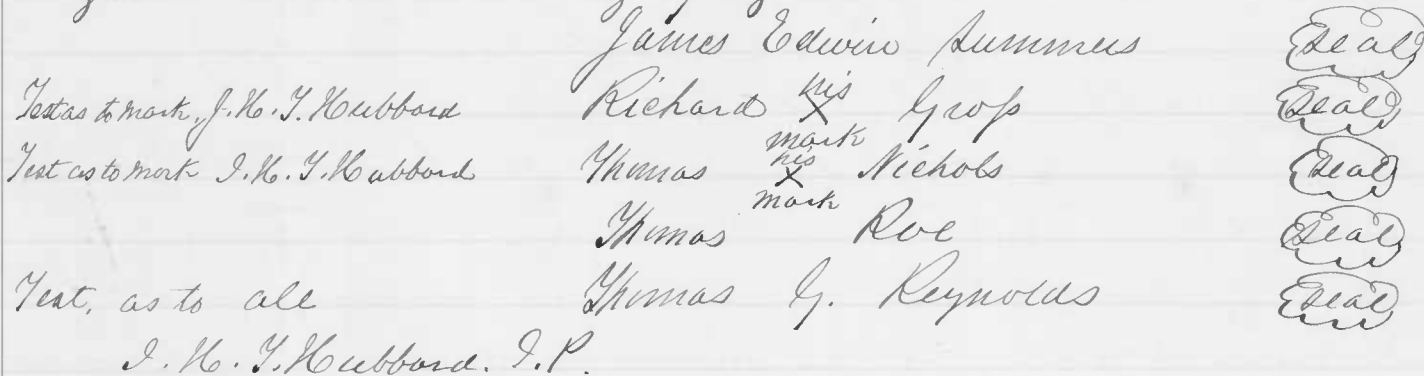 James Edwin Summers Seal
Test as to mark, J. H. T. Hubbard Richard his X mark Gross Seal
Test as to mark J. H. T. Hubbard Thomas his X mark Nichols Seal
Thomas Roe Seal
Test, as to all Thomas G. Reynolds Seal
J. H. T. Hubbard. J. P.